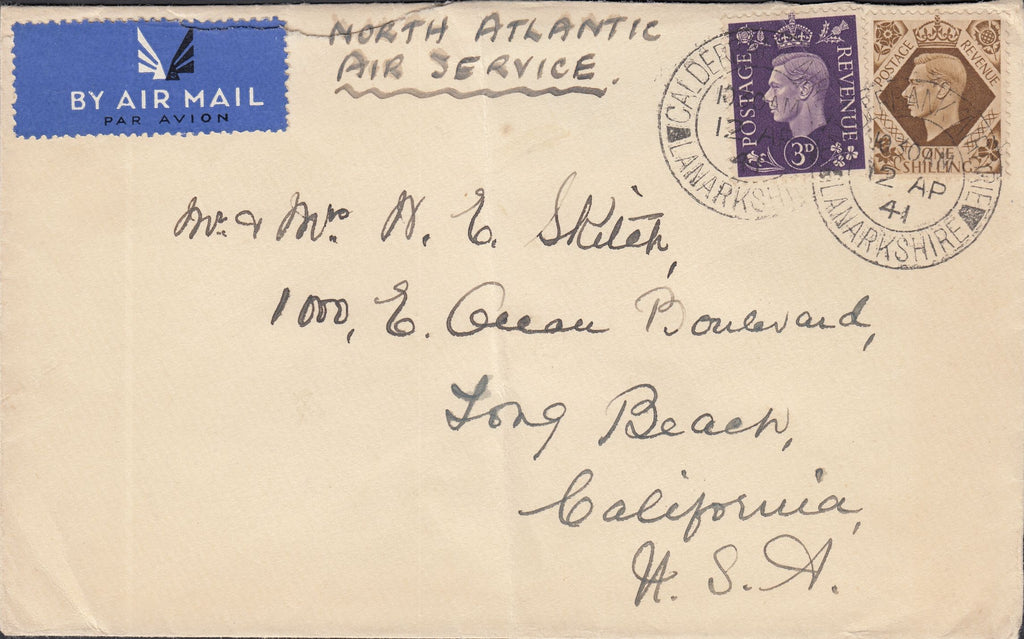 BY AIR MAIL
PAR AVION
NORTH ATLANTIC
AIR SERVICE.
POSTAGE REVENUE
3D
POSTAGE REVENUE
SHILLING
CALDER
12 AP
LANARKSHIRE
12 AP
41
LANARKSHIRE
Mr. & Mrs. W. E. Skitch,
1000, E. Ocean Boulevard,
Long Beach,
California,
U. S. A.